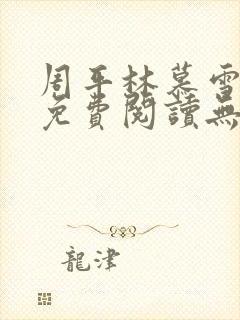 周平林慕雪
免費閱讀無
龍津